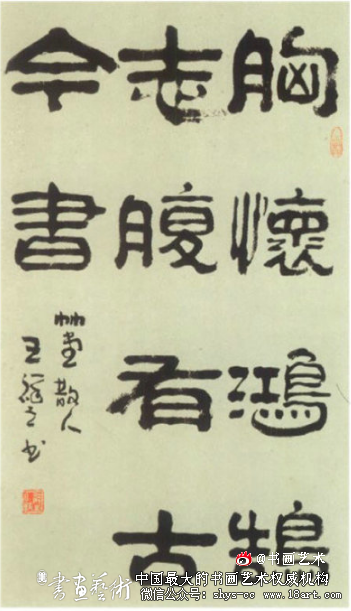 胸懷鴻鵠
志腹有古
今書
竹堂散人
王祥之书
@书画艺术
書画藝術
中国最大的书画艺术权威机构
微信公众号: shys-cc www.18art.com